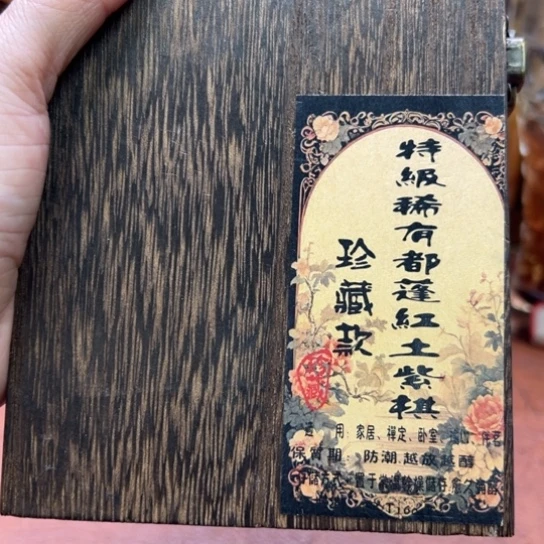 特級稀有都蓬紅土紫棋
珍藏款
适 用:家居、禅定、卧室、瑜伽、作茗
保質期:防潮.越放越醇